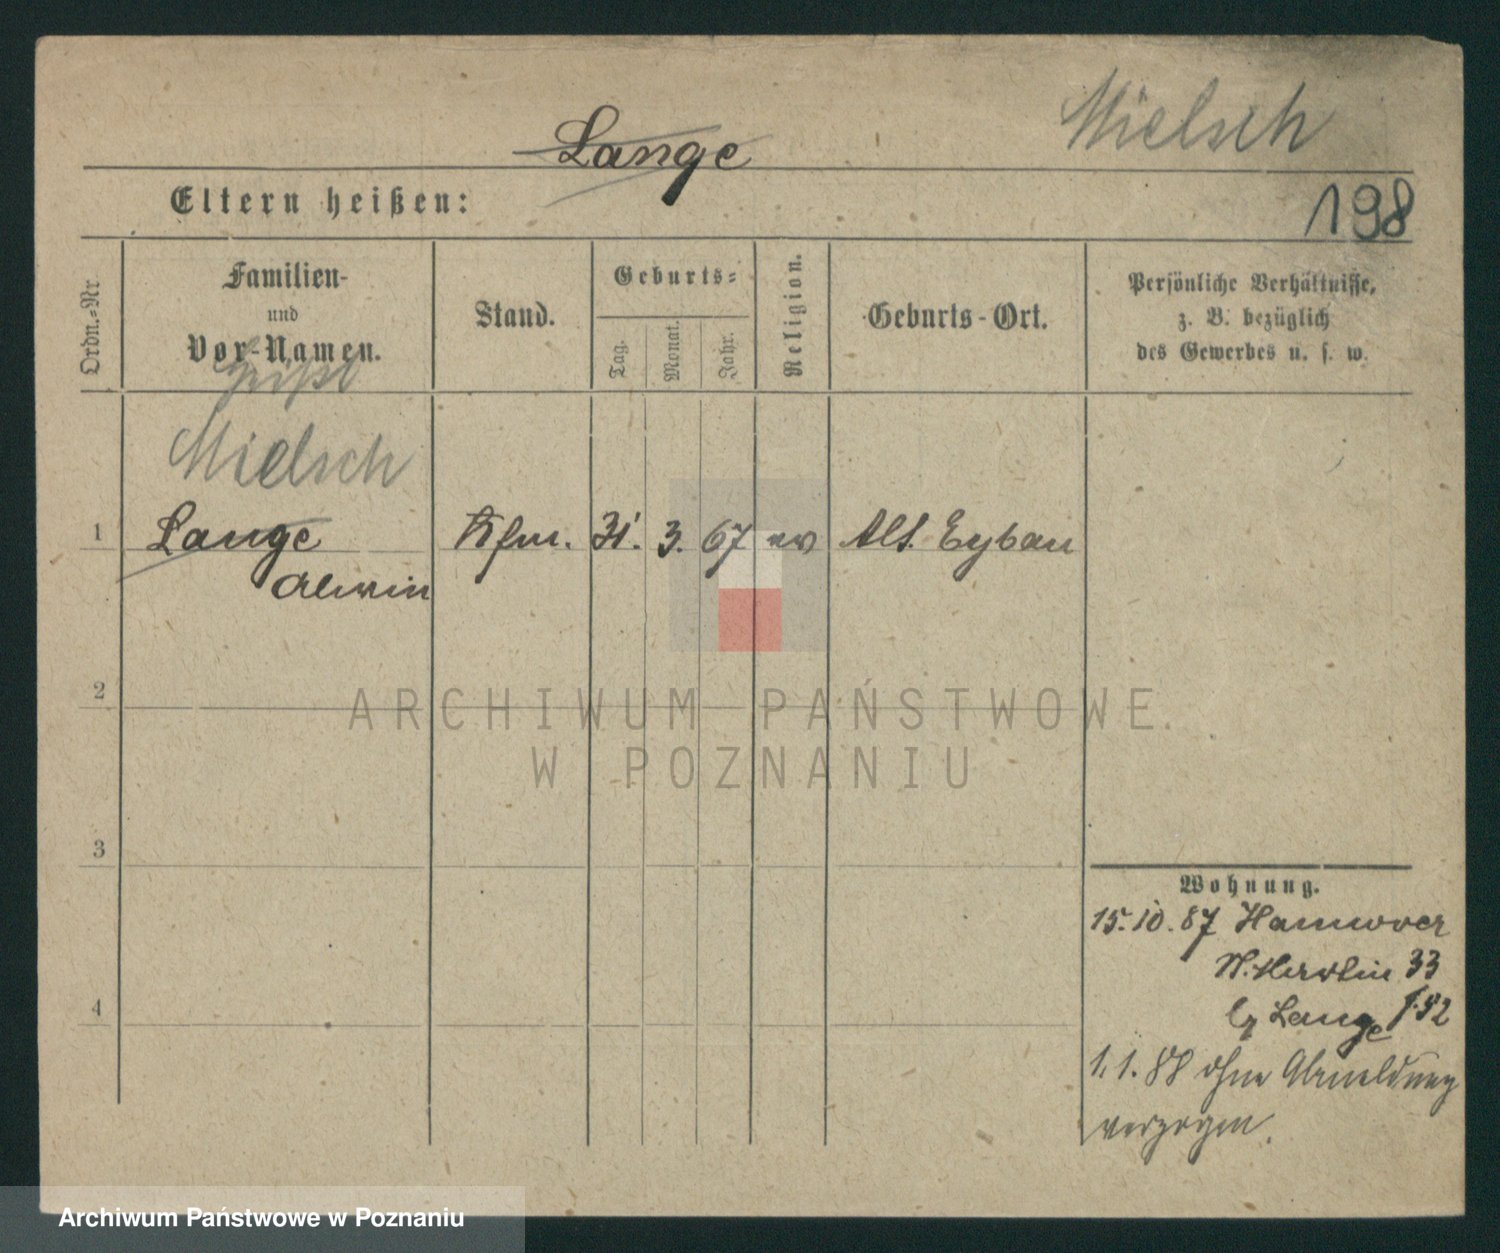 Mielsch
Lange
Eltern heißen:
198
Ordn.-Nr.
Familien-
und
Vor-Namen.
heißt
Stand.
Geburts-
Tag.
Monat.
Jahr.
Religion.
Geburts-Ort.
Persönliche Verhältnisse,
z. B. bezüglich
des Gewerbes u. s. w.
Mielsch
1 Lange Kfm. 31. 3. 67 ev Alt. Eybau
Alwin
2
ARCHIWUM PAŃSTWOWE
W POZNANIU
3
Wohnung.
15.10.87 Hannover
St. Martin 33
Lange
4
1.1.88 ohne Abmeldung
verzogen.
Archiwum Państwowe w Poznaniu